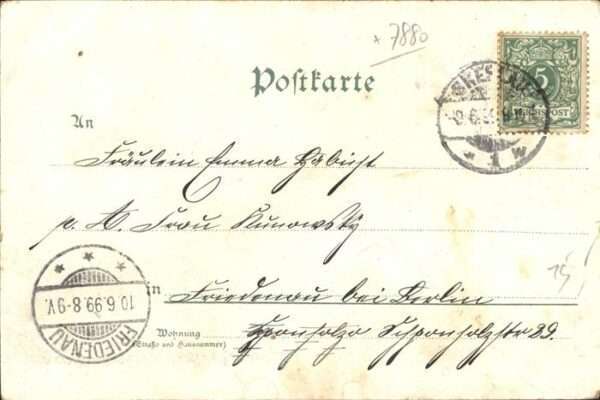 x 7880
Postkarte
5
REICHSPOST
9.6.99
* 1 w
An
Fräulein Emma Habicht
p. A. Frau Kunowsky
in Friedenau bei Berlin
Wohnung
(Straße und Hausnummer)
Sponholzstr 29.
10.6.99.8-9V.
FRIEDENAU
15